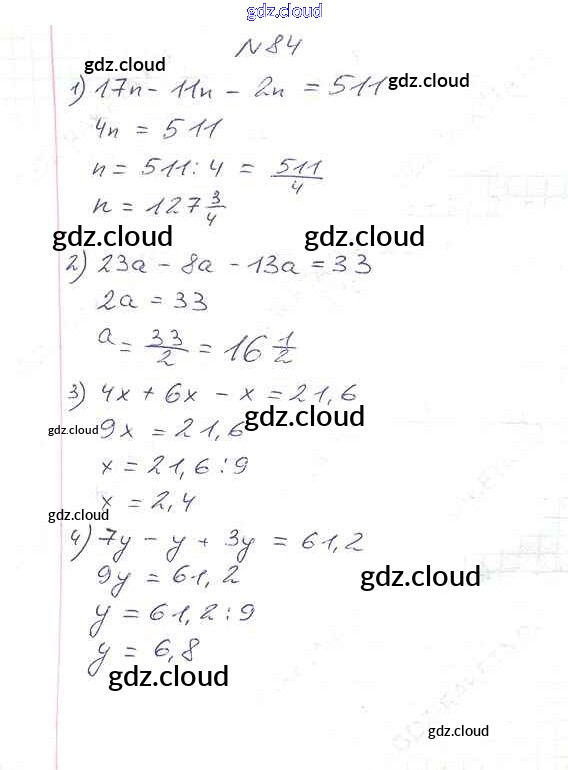 gdz.cloud
N84
gdz.cloud
1) 17n - 11n - 2n = 511 gdz.cloud
4n = 511
n = 511 : 4 = 511/4
n = 127 3/4
gdz.cloud gdz.cloud
2) 23a - 8a - 13a = 33
2a = 33
a = 33/2 = 16 1/2
3) 4x + 6x - x = 21,6
gdz.cloud 9x = 21,6 gdz.cloud
x = 21,6 : 9
x = 2,4
gdz.cloud
4) 7y - y + 3y = 61,2
9y = 61,2 gdz.cloud
y = 61,2 : 9
y = 6,8
gdz.cloud
gdz.cloud